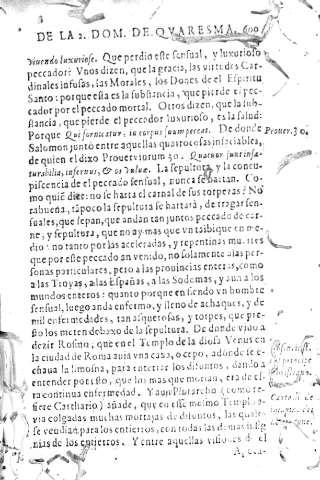 DE LA 2. DOM. DE QVARESMA. 600
viuendo luxuriose. Que perdio este sensual, y luxurioso
peccador? Vnos dizen, que la gracia, las virtudes Car-
dinales infusas, las Morales, los Dones de el Espiritu
Santo: porque esta es la substancia, que pierde el pec-
cador por el peccado mortal. Otros dizen, que la sub-
stancia, que pierde el peccador luxurioso, es la salud:
Porque Qui fornicatur, in corpus suum peccat. De donde
Prouer. 30.
Salomon juntò entre aquellas quatro cosas insaciables,
de quien el dixo Prouerviorum 30. Quatuor sunt insa-
turabilia, infernus, & os vuluæ. La sepultura, y la concu-
piscencia de el peccado sensual, nunca se hartan. Co-
mo quiē dize: no se harta el carnal de sus torpezas? No
rabueña, tāpoco la sepultura se hartarà, de tragar sen-
suales, que sepan, que andan tan juntos peccado de car-
ne, y sepultura, que no ay mas que vn tabique en me-
dio: no tanto por las aceleradas, y repentinas muertes
que por este peccado an venido, no solamente a las per-
sonas particulares, pero a las prouincias enteras, como
a las Troyas, a las Españas, a las Sodomas, y aun a los
mundos enteros: quanto porque en siendo vn hombre
sensual, luego anda enfermo, y lleno de achaques, y de
mil enfermedades, tan asquerosas, y torpes, que pre-
sto los meten debaxo de la sepultura. De donde vino a
dezir Rosino, que en el Templo de la diosa Venus en
la ciudad de Roma auia vna caxa, o cepo, adonde se e-
chaua la limosna, para enterrar los difuntos, dando a
entender por esto, que los mas que morian, era de es-
ta continua enfermedad. Y aun Plutarcho (como re-
fiere Carthario) añade, que en este mesmo Templo a-
uia colgadas muchas mortajas de difuntos, las quales
se vendian para los entierros, con todas las demas insig-
nias de los entierros. Y entre aquellas visiones d el